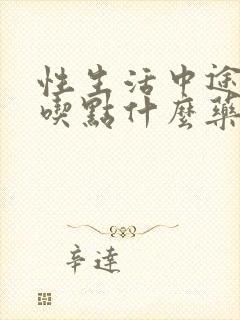 性生活中途
喫點什麼藥
辛達